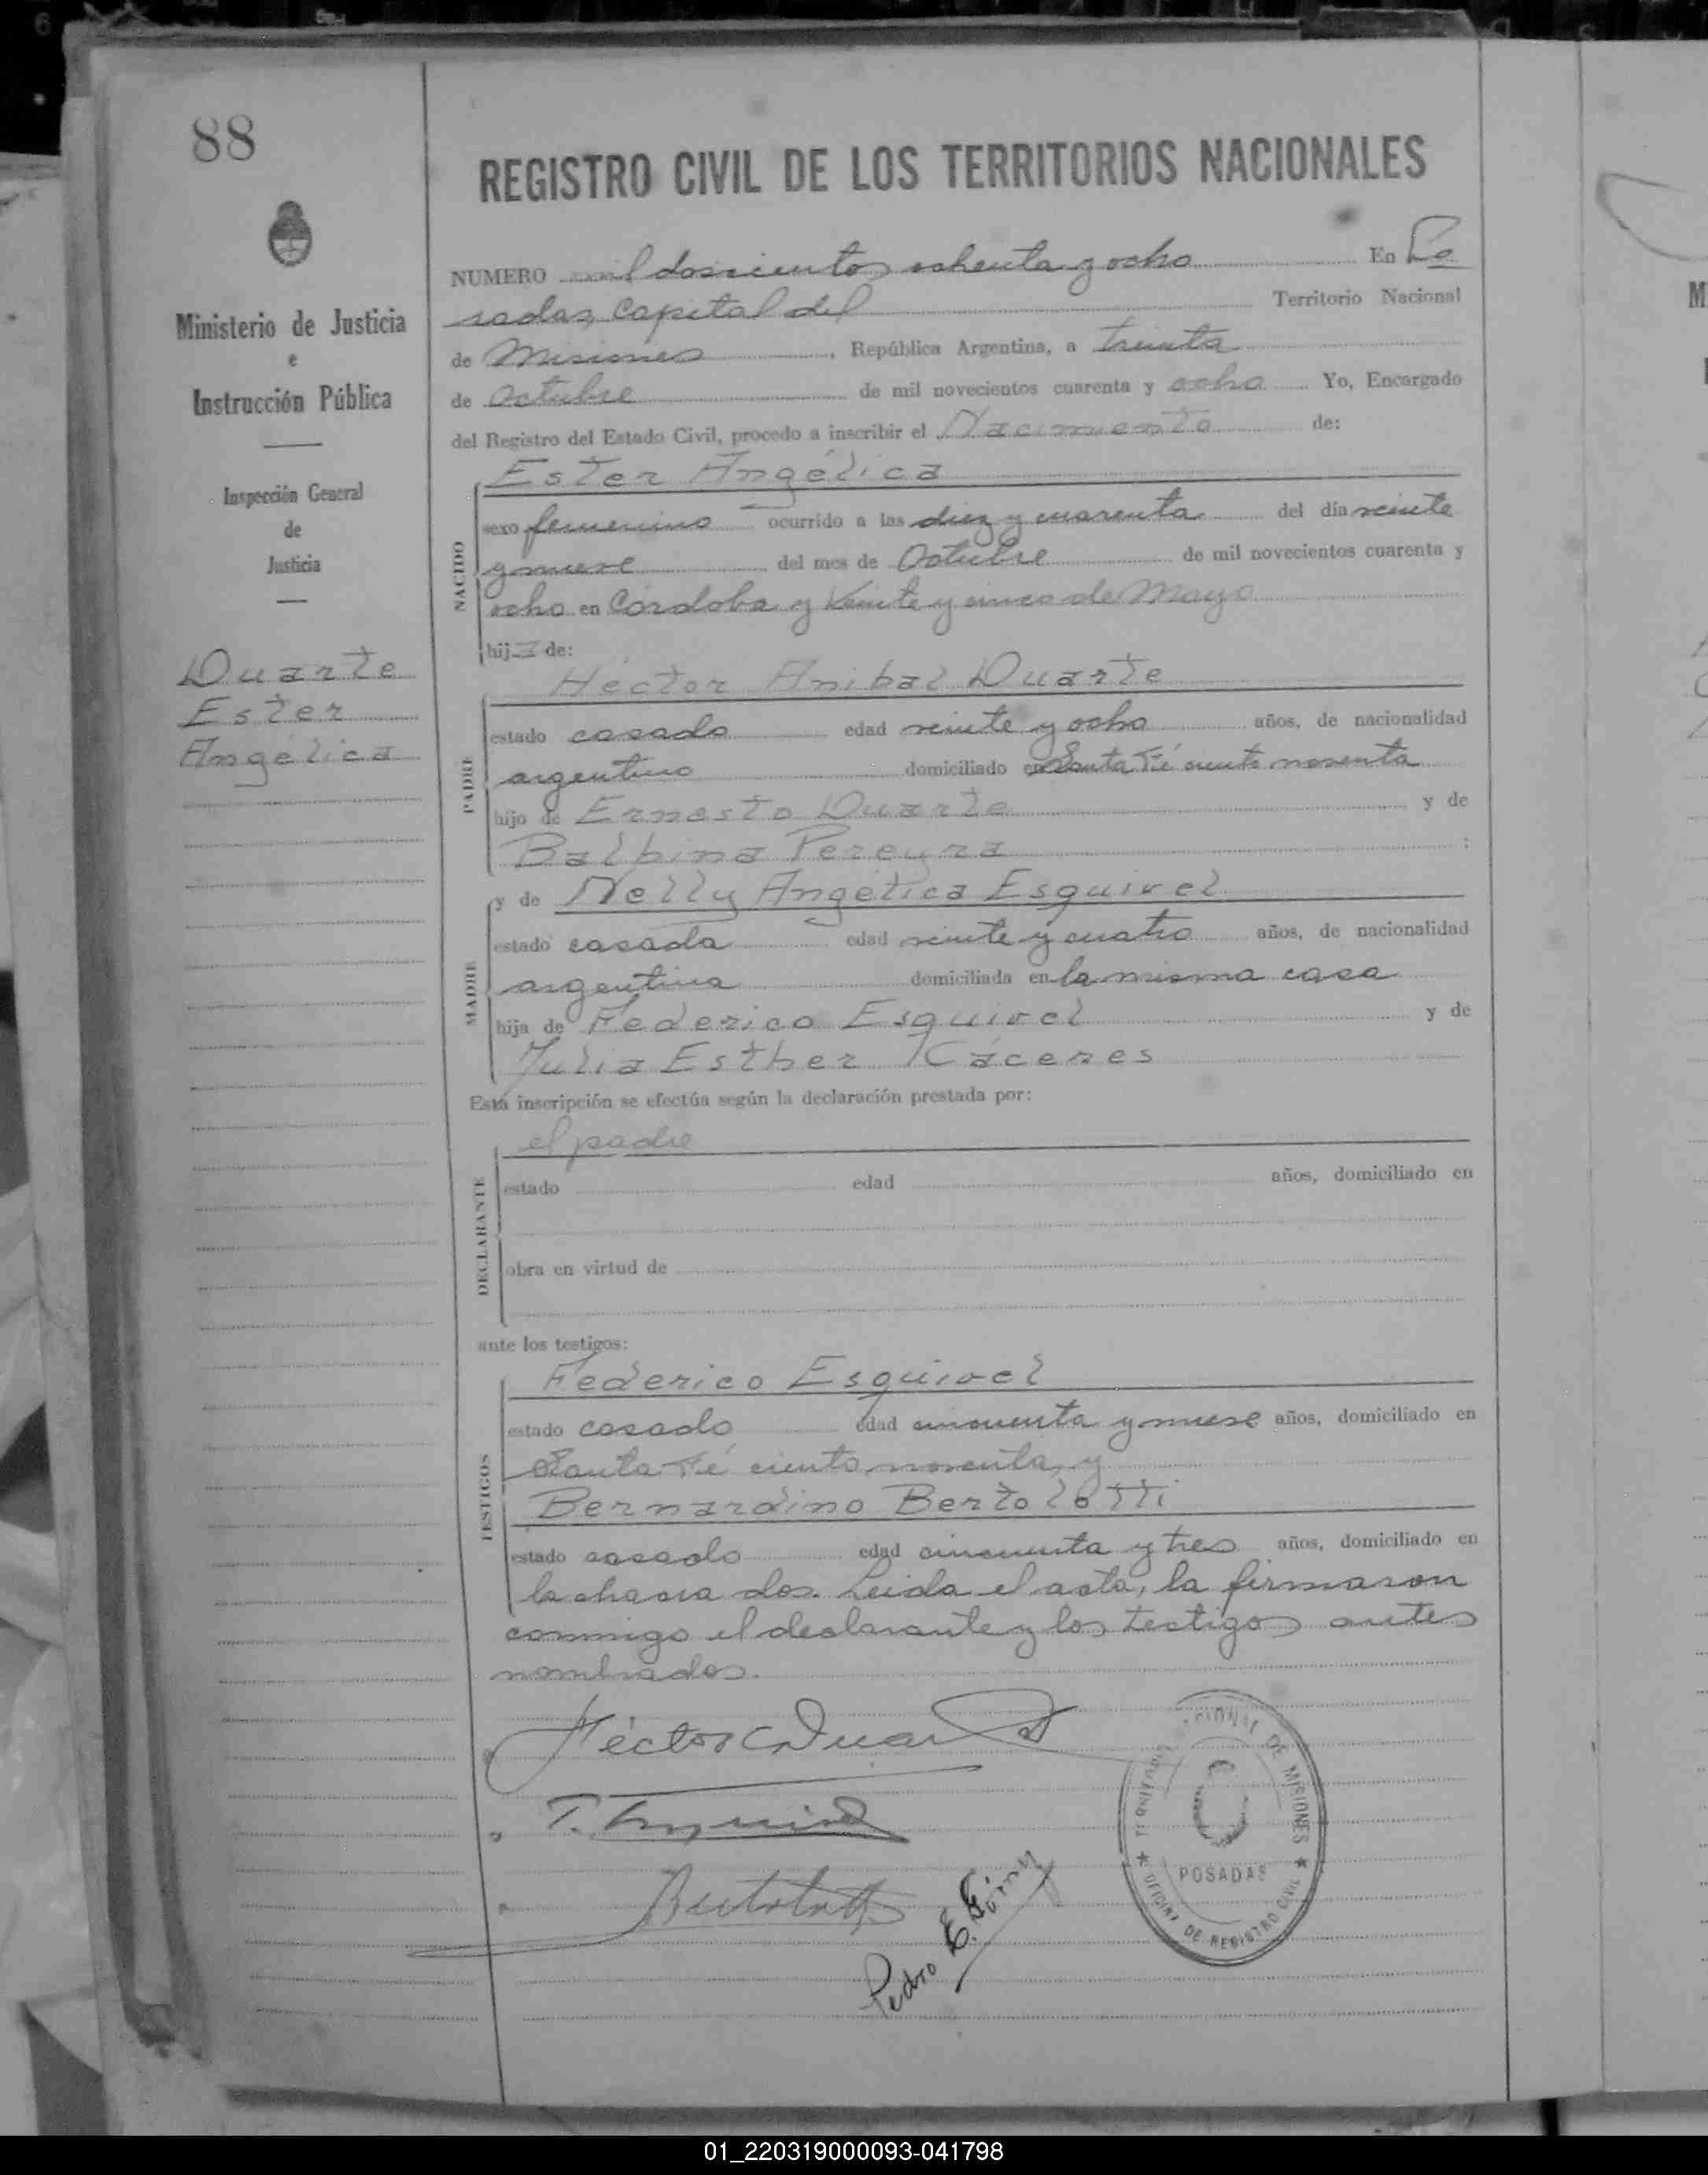 88
REGISTRO CIVIL DE LOS TERRITORIOS NACIONALES
Ministerio de Justicia
e
Instrucción Pública
Inspección General
de
Justicia
Duarte
Ester
Angélica
NUMERO mil doscientos ochenta y ocho En Po
sadas, Capital del Territorio Nacional
de Misiones, República Argentina, a treinta
de Octubre de mil novecientos cuarenta y ocho Yo, Encargado
del Registro del Estado Civil, procedo a inscribir el Nacimiento de:
NACIDO
Ester Angélica
sexo femenino ocurrido a las diez y cuarenta del día veinte
y nueve del mes de Octubre de mil novecientos cuarenta y
ocho en Córdoba y Veinte y cinco de Mayo
hija de:
PADRE
Héctor Anibal Duarte
estado casado edad veinte y ocho años, de nacionalidad
argentino domiciliado en Santa Fé ciento noventa
hijo de Ernesto Duarte y de
Balbina Pereyra :
MADRE
y de Nelly Angélica Esquivel
estado casada edad veinte y cuatro años, de nacionalidad
argentina domiciliada en la misma casa
hija de Federico Esquivel y de
Julia Esther Cáceres
Esta inscripción se efectúa según la declaración prestada por:
DECLARANTE
el padre
estado edad años, domiciliado en
obra en virtud de
ante los testigos:
TESTIGOS
Federico Esquivel
estado casado edad cincuenta y nueve años, domiciliado en
Santa Fé ciento noventa, y
Bernardino Bertolotti
estado casado edad cincuenta y tres años, domiciliado en
la chacra dos. Leida el acta, la firmaron
conmigo el declarante y los testigos antes
nombrados.
Héctor A Duarte
Pedro E.
TERRITORIO NACIONAL DE MISIONES
POSADAS
OFICINA DE REGISTRO CIVIL
01_220319000093-041798